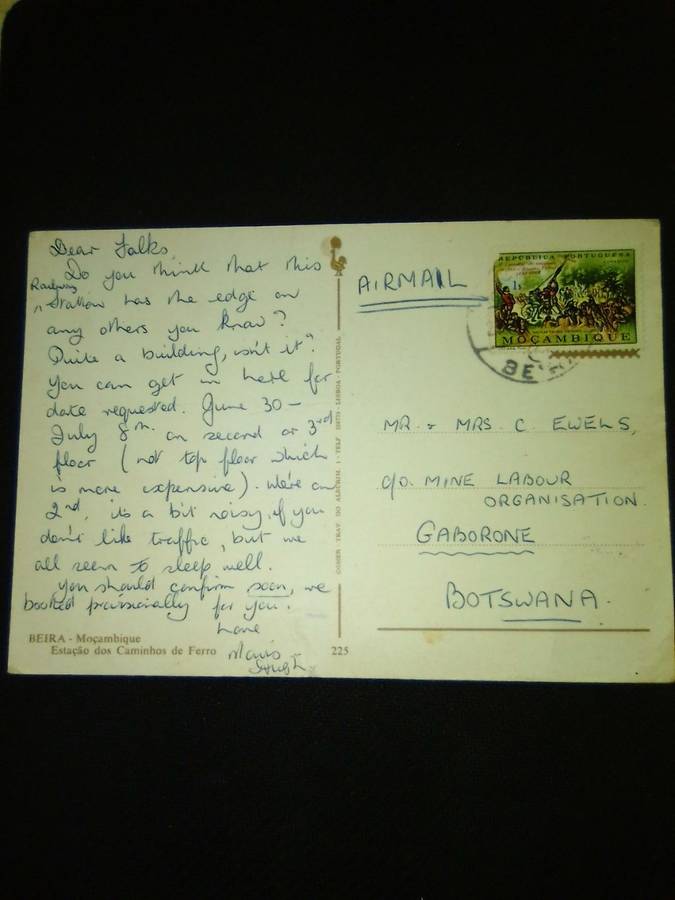 Dear Folks,
Do you think that this
Railway
Station has the edge on
any others you know?
Quite a building, isn't it?
You can get in here for
date requested. June 30 -
July 8th. on second or 3rd
floor (not top floor which
is more expensive). We're on
2nd, its a bit noisy, if you
don't like traffic, but we
all seem to sleep well.
You should confirm soon, we
booked provisionally for you.
Love
BEIRA - Moçambique
Estação dos Caminhos de Ferro
225
LISBOA - PORTUGAL
AIRMAIL
REPÚBLICA PORTUGUESA
1$
MOÇAMBIQUE
MR. & MRS. C. EWELS,
c/o. MINE LABOUR
ORGANISATION.
GABORONE
BOTSWANA.